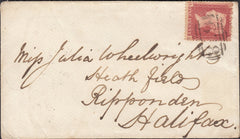 Miss Julia Wheelwright
Heath field
Ripponden
Halifax